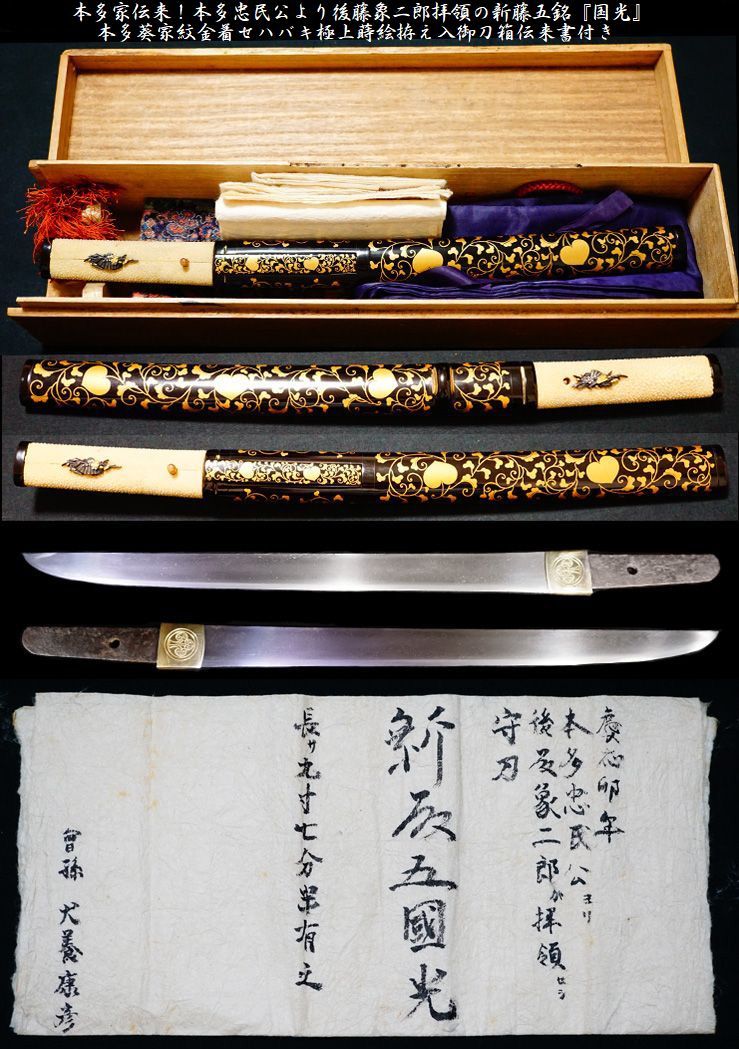 本多家伝来！本多忠民公より後藤象二郎拝領の新藤五銘『国光』
本多葵家紋金着せハバキ極上蒔絵拵え入御刀箱伝来書付き
慶応卯年
本多忠民公ヨリ
後藤象二郎が拝領セシ
守刀
新藤五國光
長サ九寸七分半有之
曾孫 犬養康彦